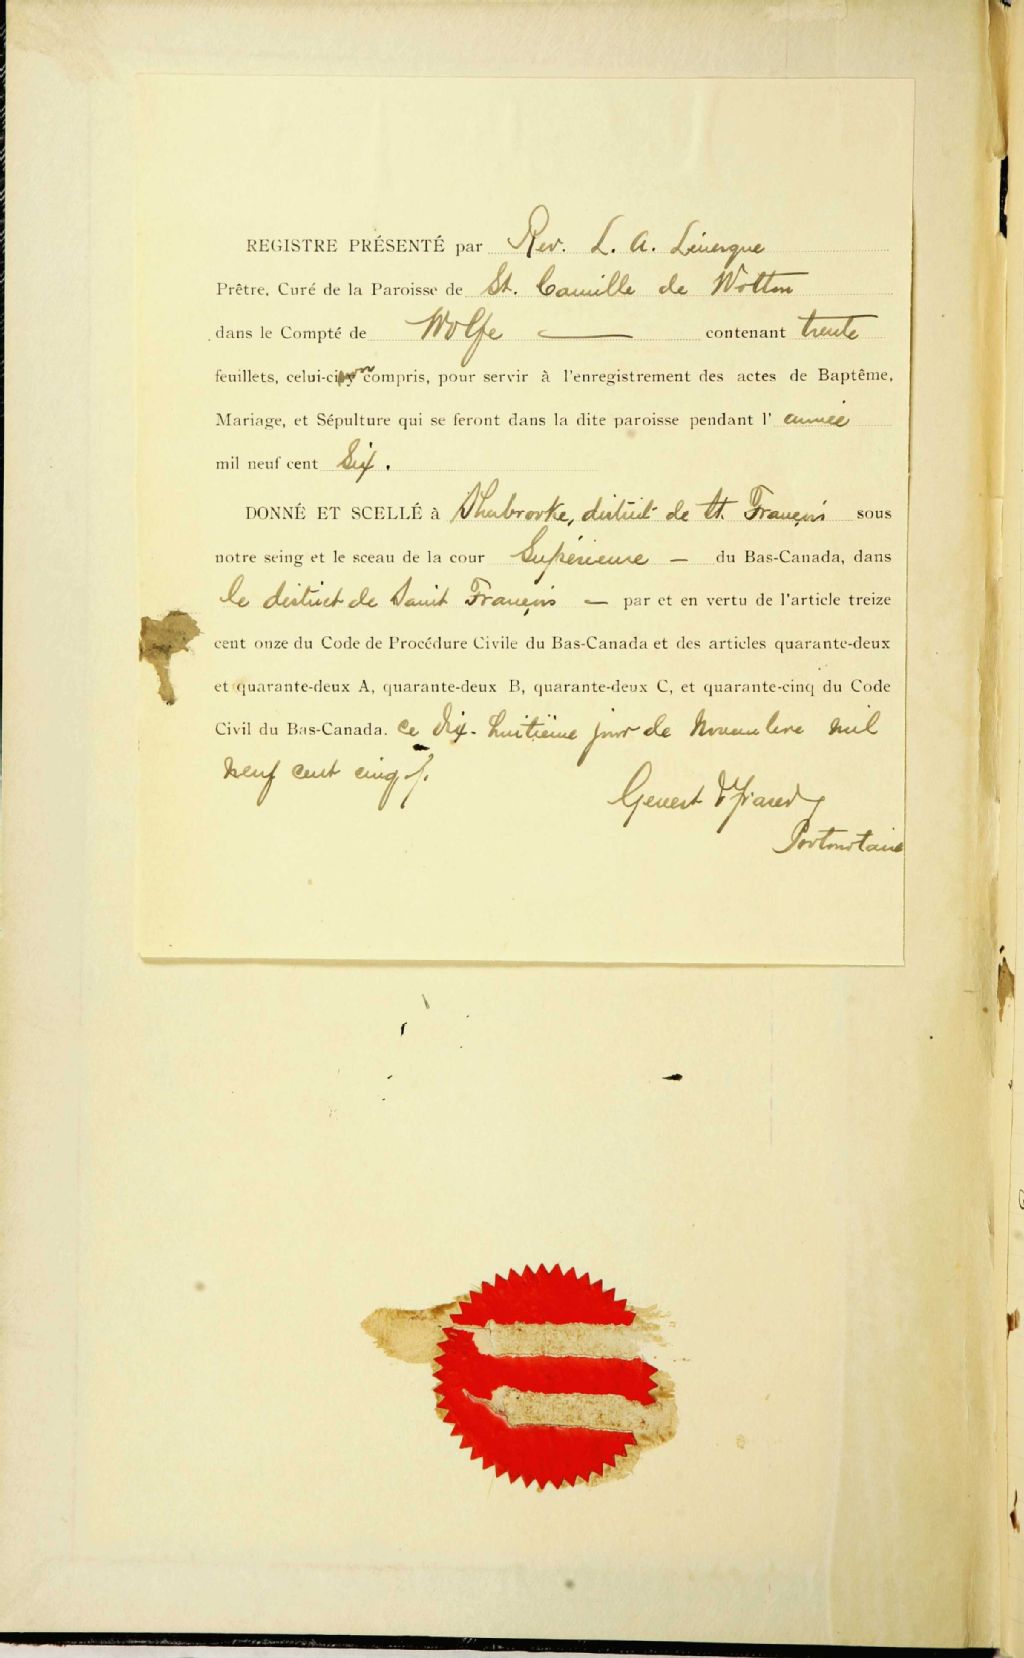 REGISTRE PRÉSENTÉ par Rev. L. A. Lévergne
Prêtre, Curé de la Paroisse de St. Camille de Wotton
dans le Compté de Wolfe — contenant trente
feuillets, celui-ci non compris, pour servir à l'enregistrement des actes de Baptême,
Mariage, et Sépulture qui se feront dans la dite paroisse pendant l' année
mil neuf cent Six.
DONNÉ ET SCELLÉ à Sherbrooke, district de St. François sous
notre seing et le sceau de la cour Supérieure — du Bas-Canada, dans
le district de Saint François — par et en vertu de l'article treize
cent onze du Code de Procédure Civile du Bas-Canada et des articles quarante-deux
et quarante-deux A, quarante-deux B, quarante-deux C, et quarante-cinq du Code
Civil du Bas-Canada. ce dix-huitième jour de Novembre mil
neuf cent cinq
Genest &
Protonotaire